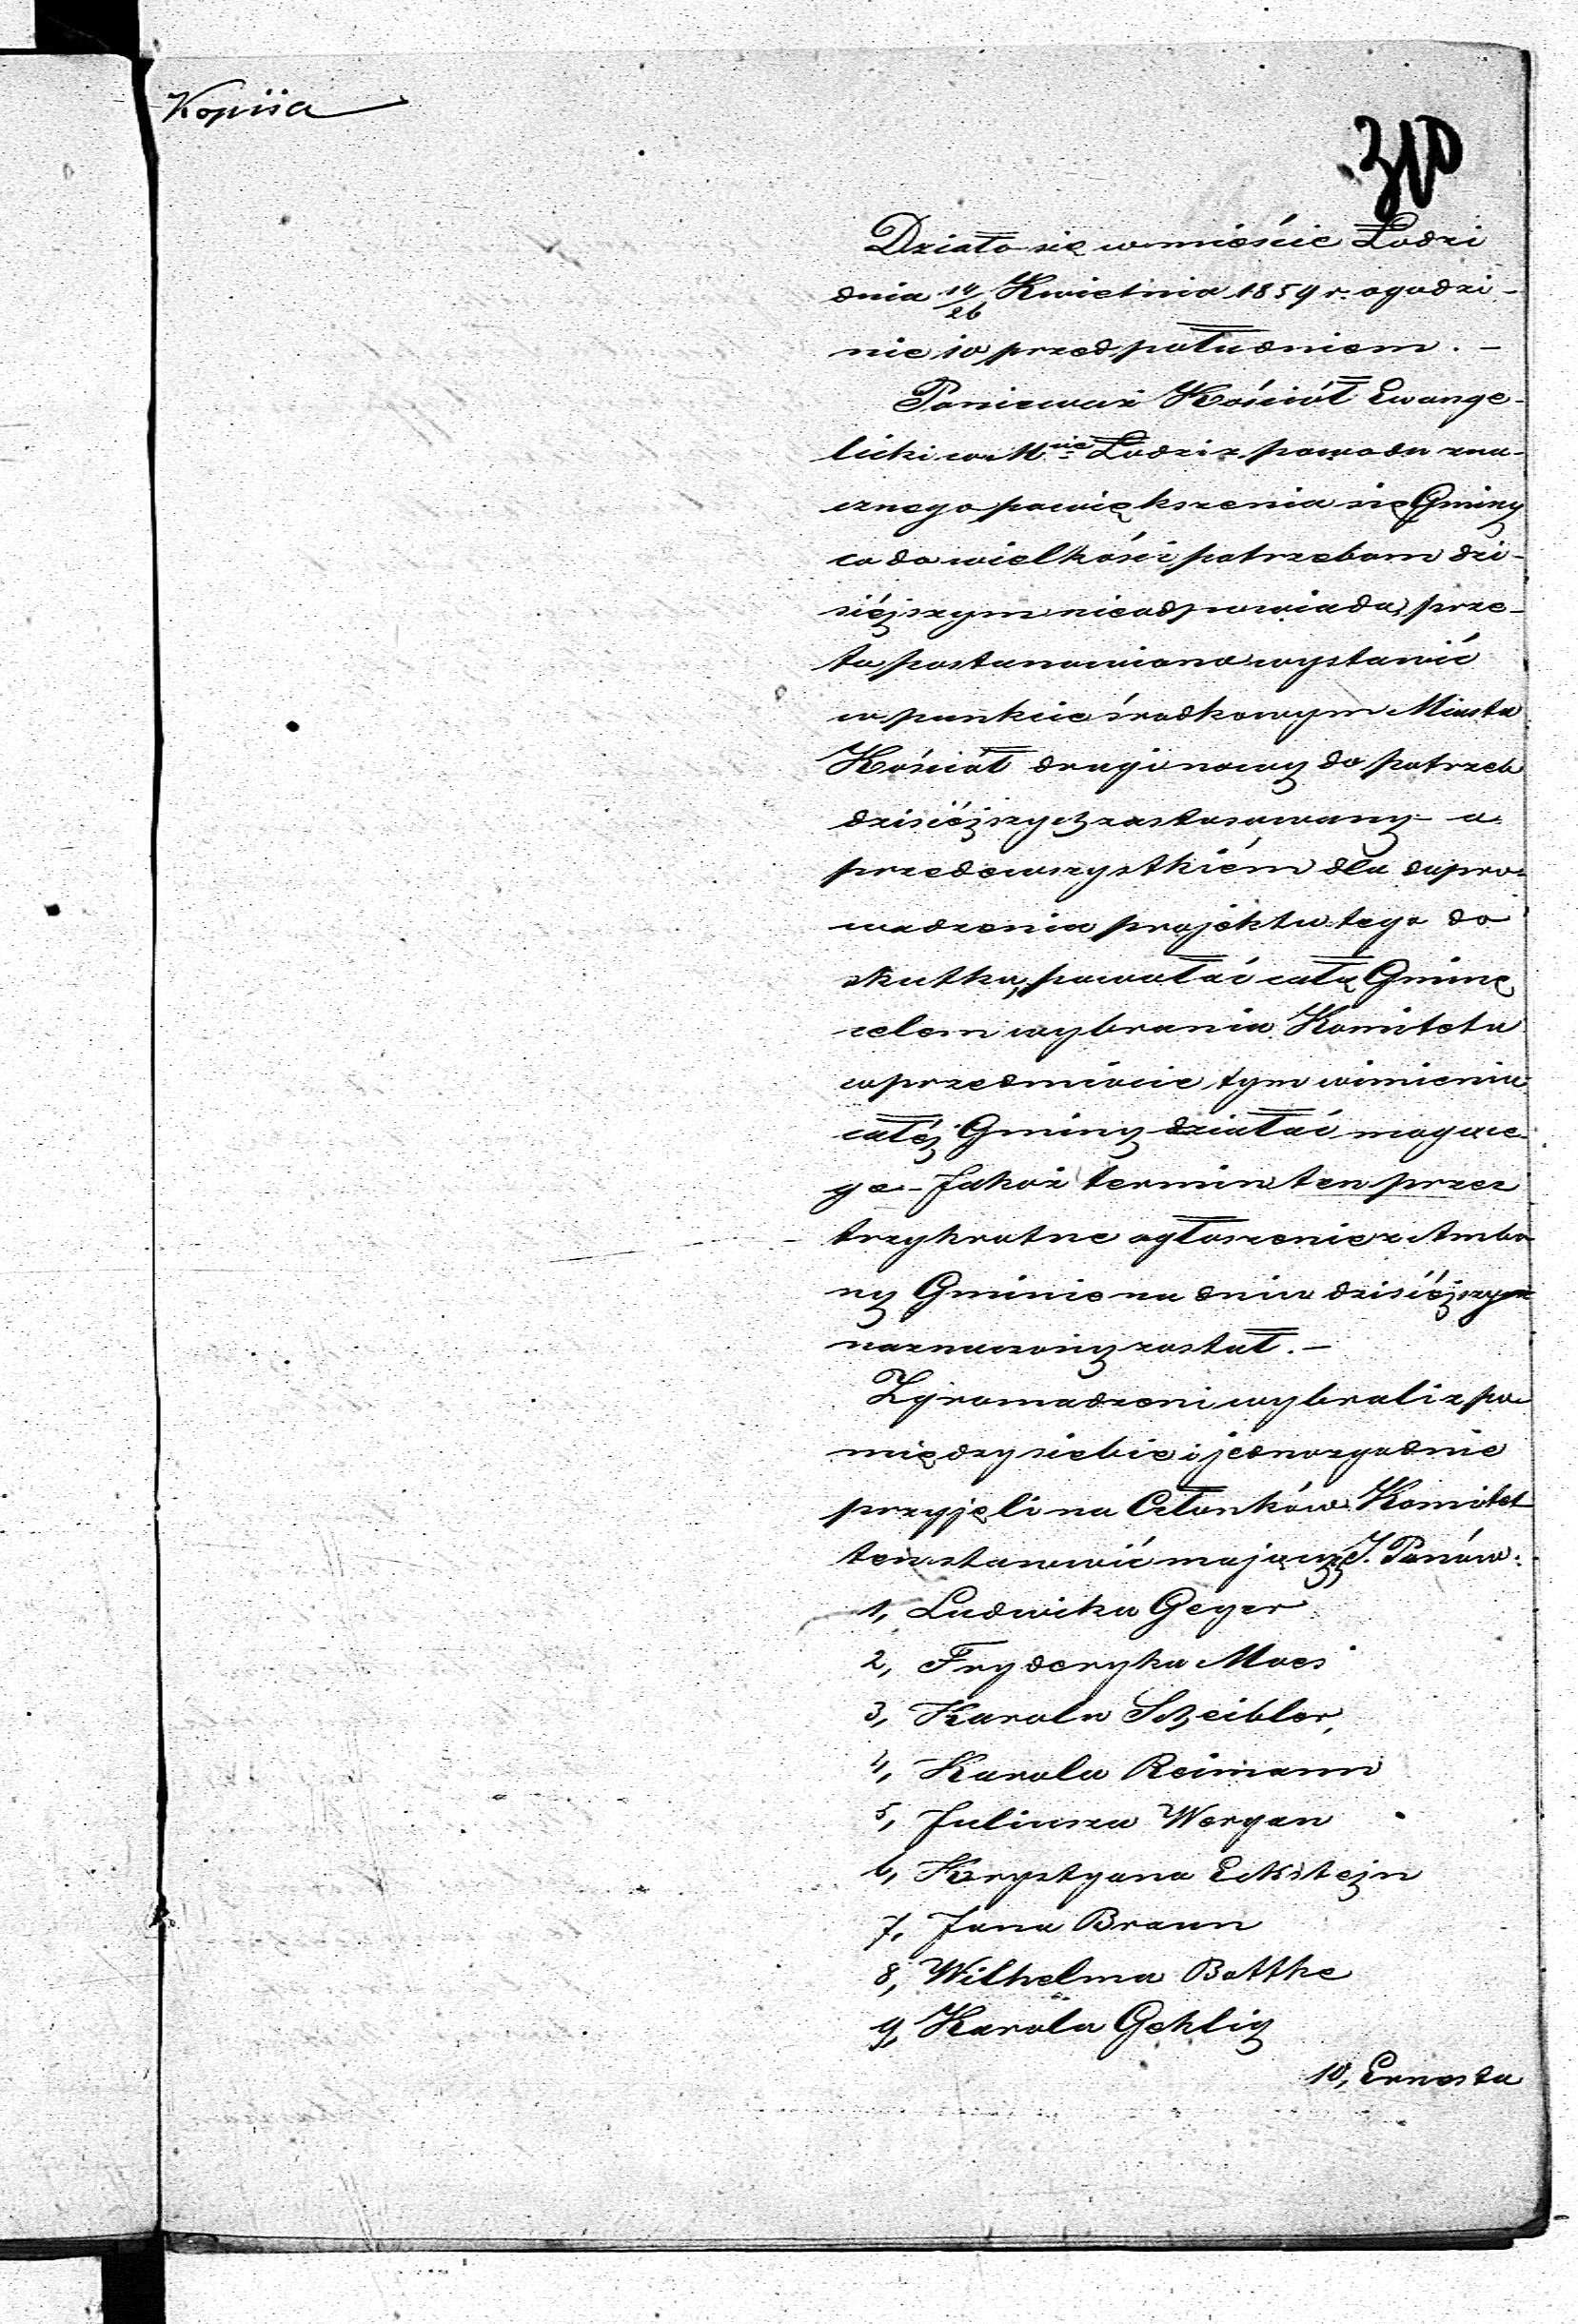 Kopiia
310
Działo się w mieście Łodzi
dnia 14/26 Kwietnia 1859 r. o godzi-
nie 10 przed południem. –
Poniewaź Kościół Ewange-
licki w Mcie Łodzi z powodu zna-
cznego powiększenia się Gminy
co do wielkości potrzebom dzi-
siéjszym nieodpowiada, prze-
to postanowiono wystawić
w punkcie środkowym Miasta
Kościół drugi nowy do potrzeb
dzisiéjszych zastosowany a
przedewszystkiém dla dopro-
wadzenia projektu tego do
skutku, powołać całą Gminę
celem wybrania Komitetu
w przedmiocie tym w imieniu
całéj Gminy działać mogące-
go – Jakoź termin ten przez
trzykrotne ogłoszenie z Ambo
ny Gminie na dniu dzisiéjszym
naznaczony został. –
Zgromadzeni wybrali z po
między siebie i jednozgodnie
przyjęli na Członków Komitet
ten stanowić mających J. Panów:
1, Ludwika Geyer
2, Fryderyka Moes
3, Karola Scheibler,
4, Karola Reimann
5, Juliusza Wergau
6, Krystyana Eckstejn
7, Jana Braun
8, Wilhelma Batthe
9, Karola Gehlig
10, Ernesta